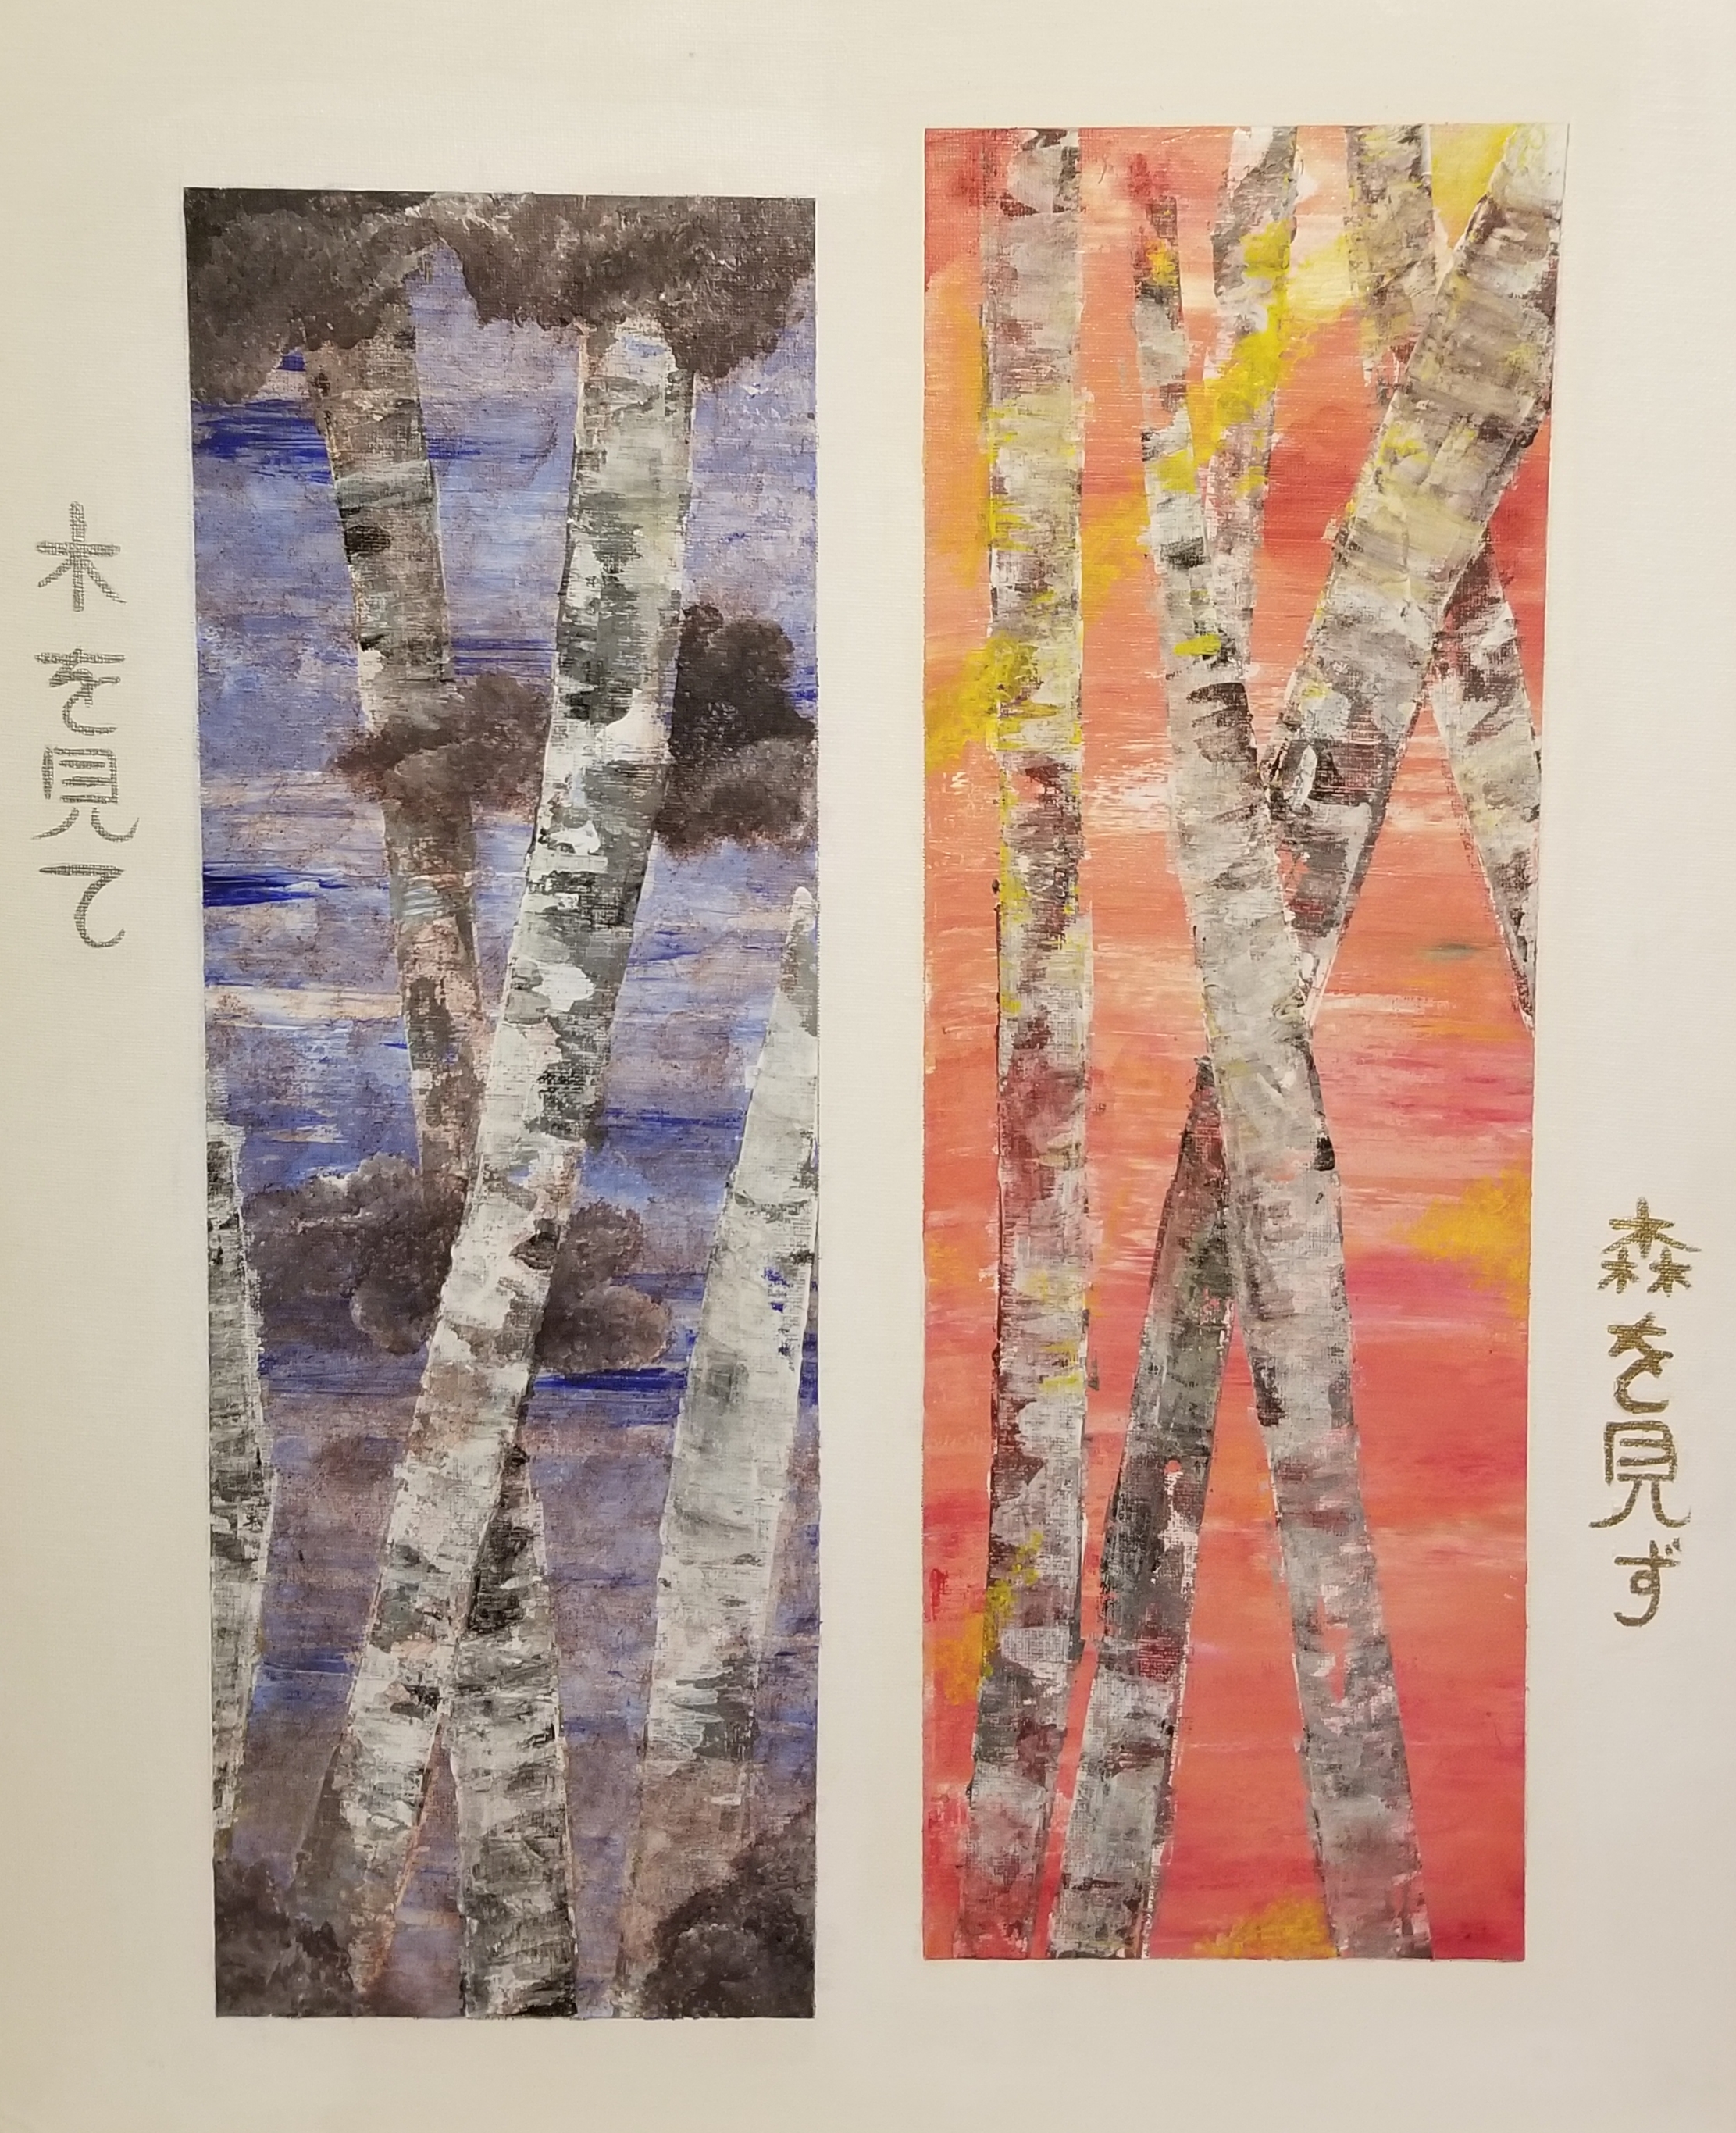 木を見て
森を見ず